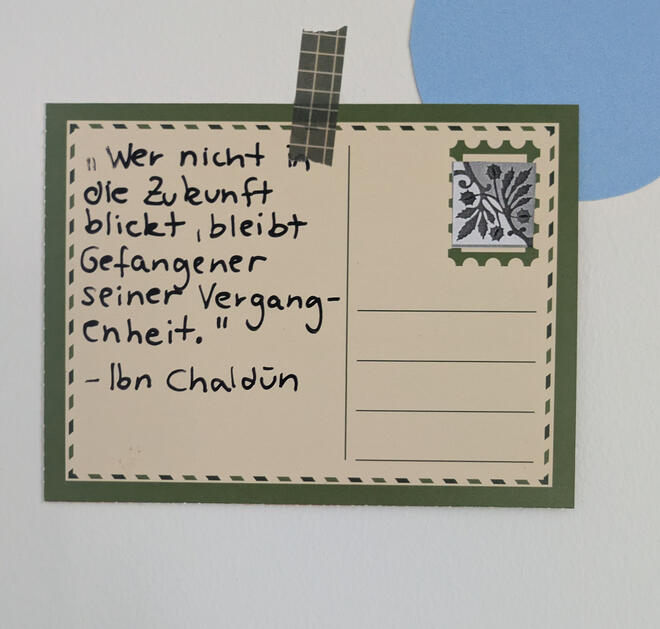 „Wer nicht in
die Zukunft
blickt, bleibt
Gefangener
seiner Vergang-
enheit."
- Ibn Chaldūn